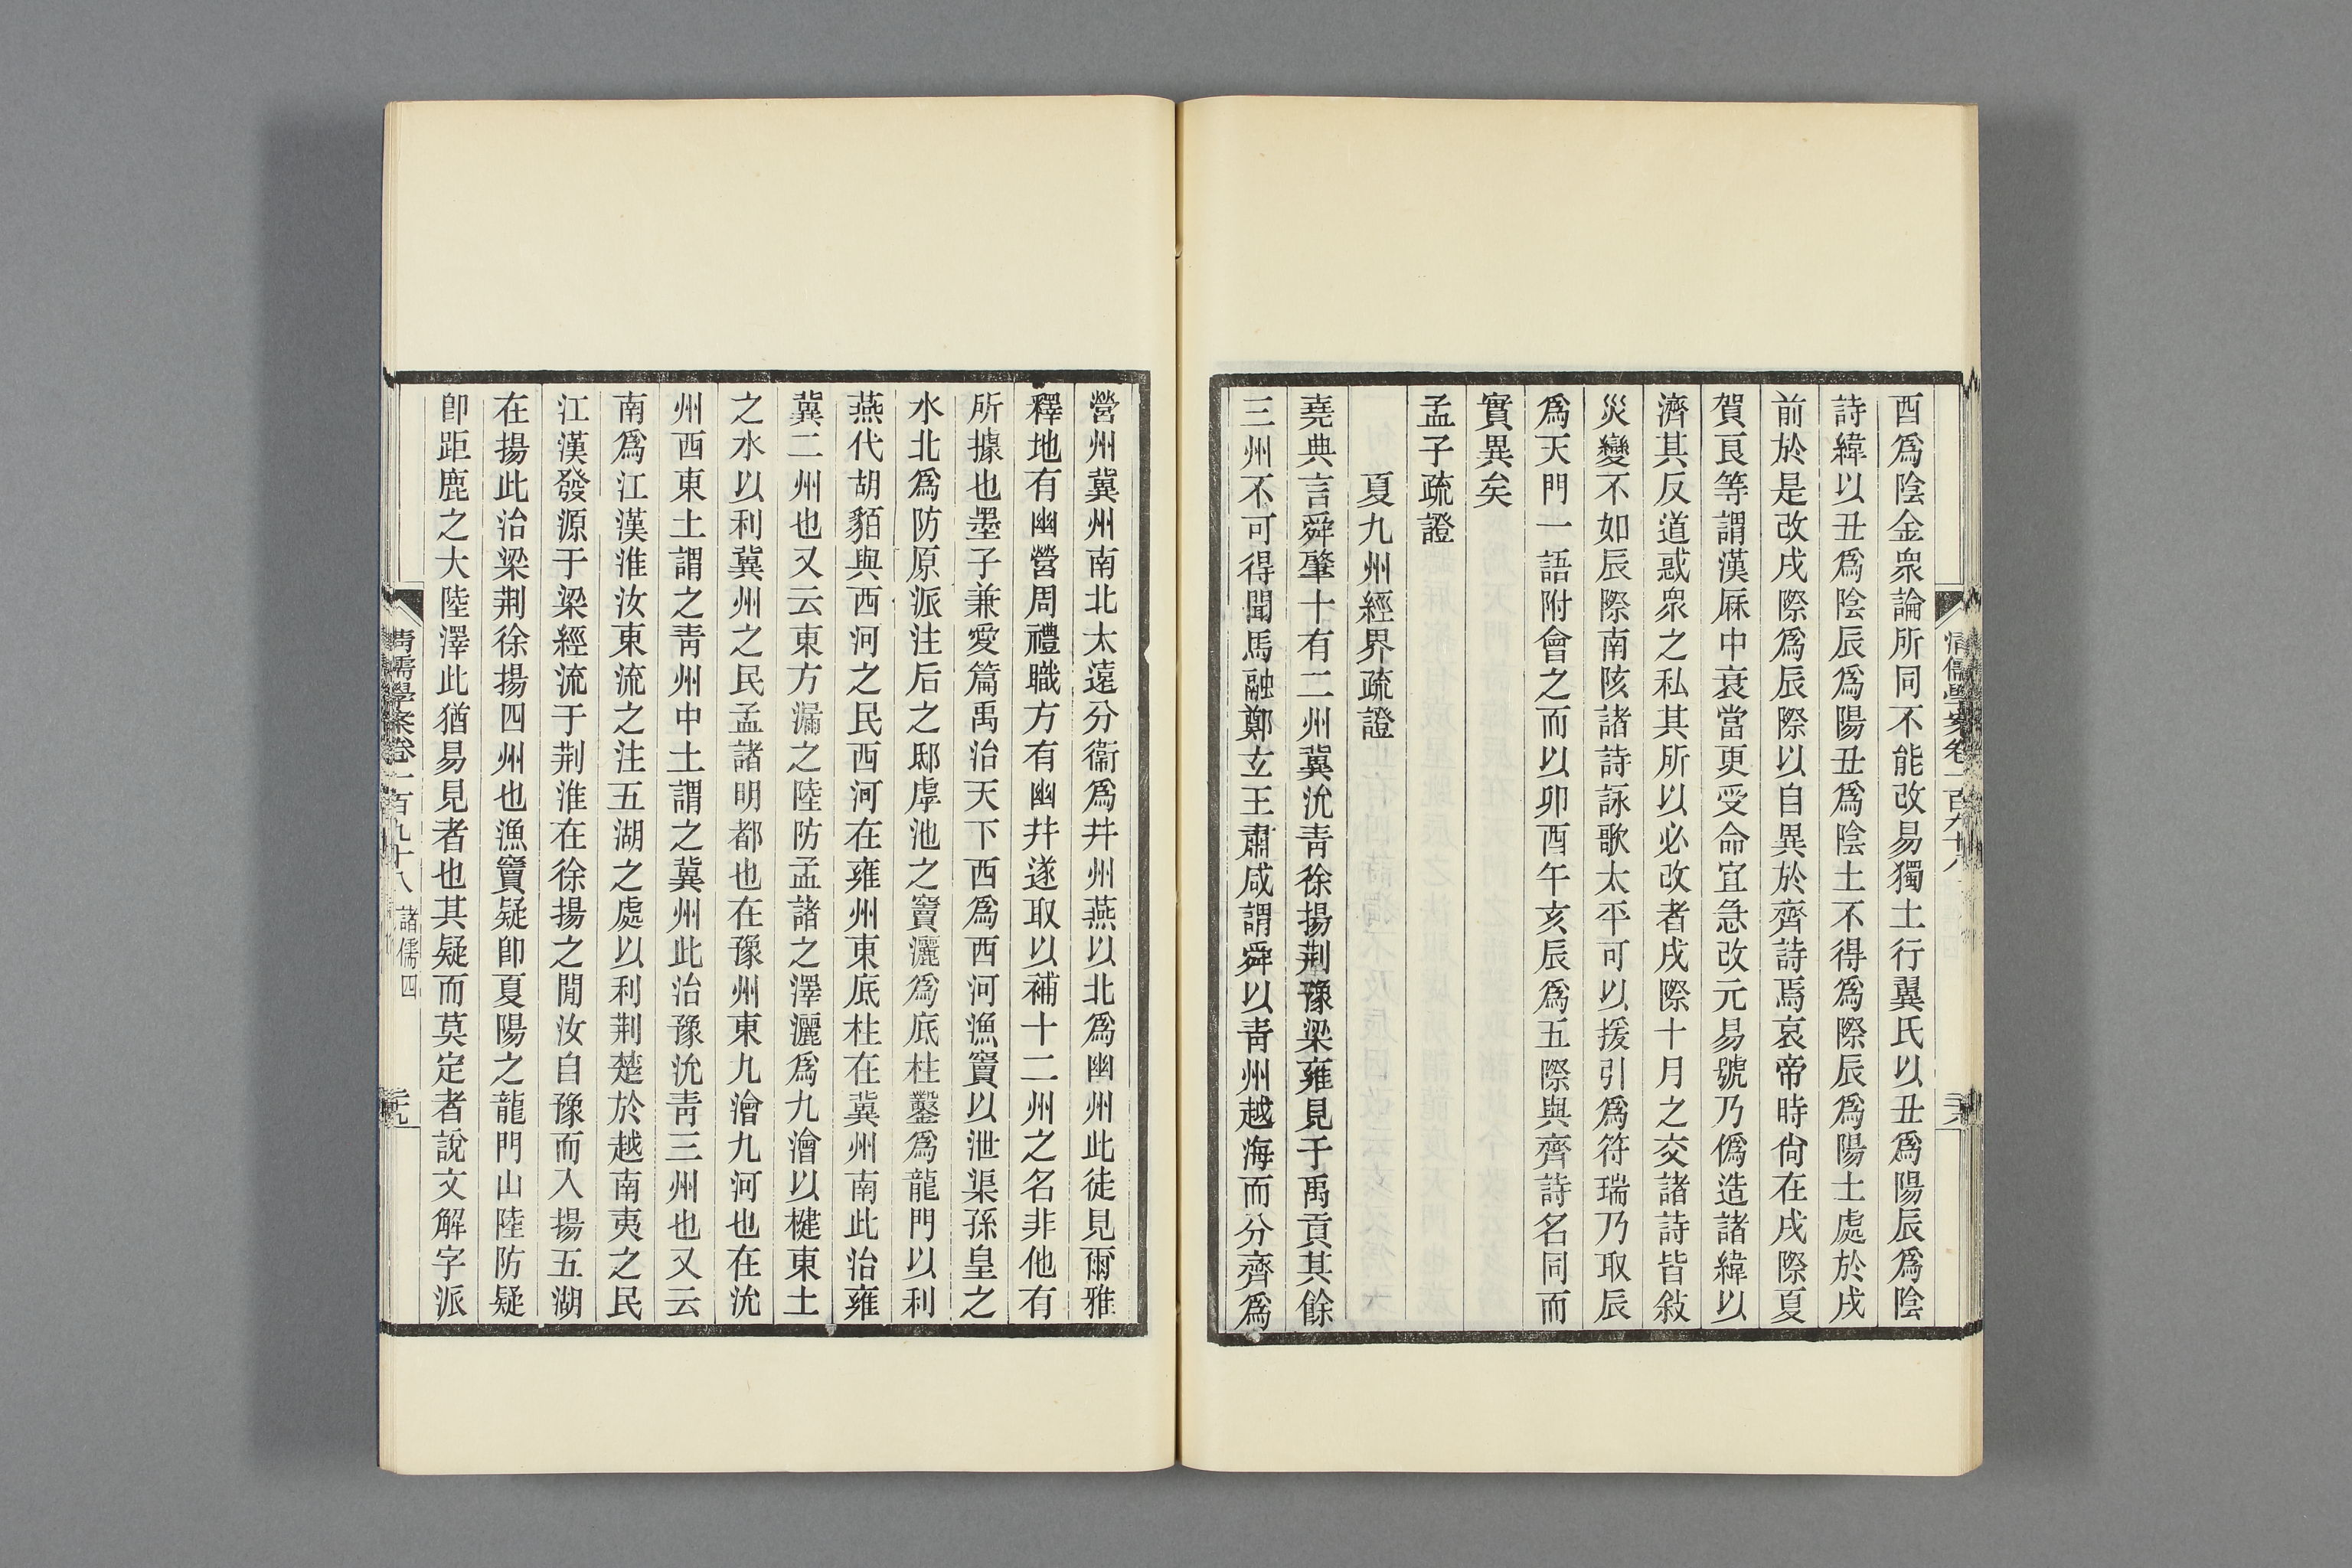 酉爲陰金衆論所同不能改易獨土行翼氏以丑爲陽辰爲陰
詩緯以丑爲陰辰爲陽丑爲陰土不得爲際辰爲陽土處於戌
前於是改戌際爲辰際以自異於齊詩焉哀帝時尙在戌際夏
賀良等謂漢厤中衰當更受命宜急改元易號乃僞造諸緯以
濟其反道惑衆之私其所以必改者戌際十月之交諸詩皆敍
災變不如辰際南陔諸詩詠歌太平可以援引爲符瑞乃取辰
爲天門一語附會之而以卯酉午亥辰爲五際與齊詩名同而
實異矣
孟子疏證
夏九州經界疏證
堯典言舜肇十有二州冀沇靑徐揚荆豫梁雍見于禹貢其餘
三州不可得聞馬融鄭玄王肅咸謂舜以靑州越海而分齊爲
營州冀州南北太遠分衞爲幷州燕以北爲幽州此徒見爾雅
釋地有幽營周禮職方有幽幷遂取以補十二州之名非他有
所據也墨子兼愛篇禹治天下西爲西河漁竇以泄渠孫皇之
水北爲防原派注后之邸虖池之竇灑爲底柱鑿爲龍門以利
燕代胡貉與西河之民西河在雍州東底柱在冀州南此治雍
冀二州也又云東方漏之陸防孟諸之澤灑爲九澮以楗東土
之水以利冀州之民孟諸明都也在豫州東九澮九河也在沇
州西東土謂之靑州中土謂之冀州此治豫沇靑三州也又云
南爲江漢淮汝東流之注五湖之處以利荆楚於越南夷之民
江漢發源于梁經流于荆淮在徐揚之閒汝自豫而入揚五湖
在揚此治梁荆徐揚四州也漁竇疑卽夏陽之龍門山陸防疑
卽距鹿之大陸澤此猶易見者也其疑而莫定者說文解字派
清儒學案卷一百九十八 諸儒四